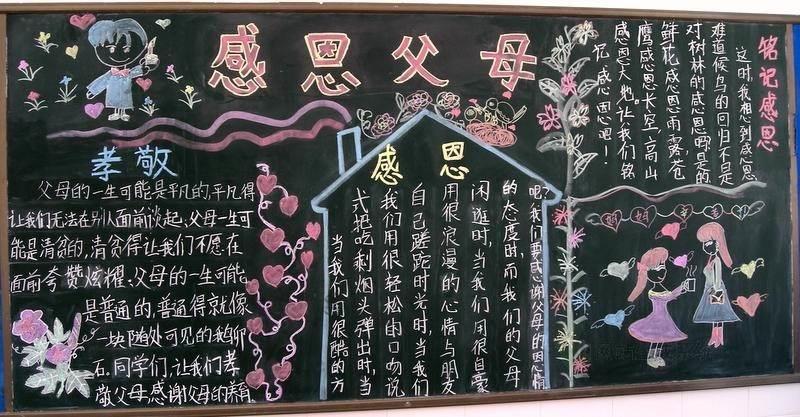 感恩父母
孝敬
父母的一生可能是平凡的,平凡得
让我们无法在别人面前谈起,父母一生可
能是清贫的,清贫得让我们不愿在
面前夸赞炫耀、父母的一生可能
是普通的,普通得就像
一块随处可见的鹅卵
石.同学们,让我们孝
敬父母.感谢父母的养育.
感恩
当我们用很酷的方
式把吃剩烟头弹出时,当
我们用很轻松的口吻说
自己蹉跎时光时,当我们
用很浪漫的心情与朋友
闲逛时,当我们用很自豪
的态度时,而我们的父母
呢?我们要感谢父母的恩情
铭记感恩
这时,我想到感恩
难道候鸟的回归不是
对树林的感恩吗?是的
鲜花感恩雨露.苍
鹰感恩长空,高山
感恩大地.让我们铭
记感恩吧!